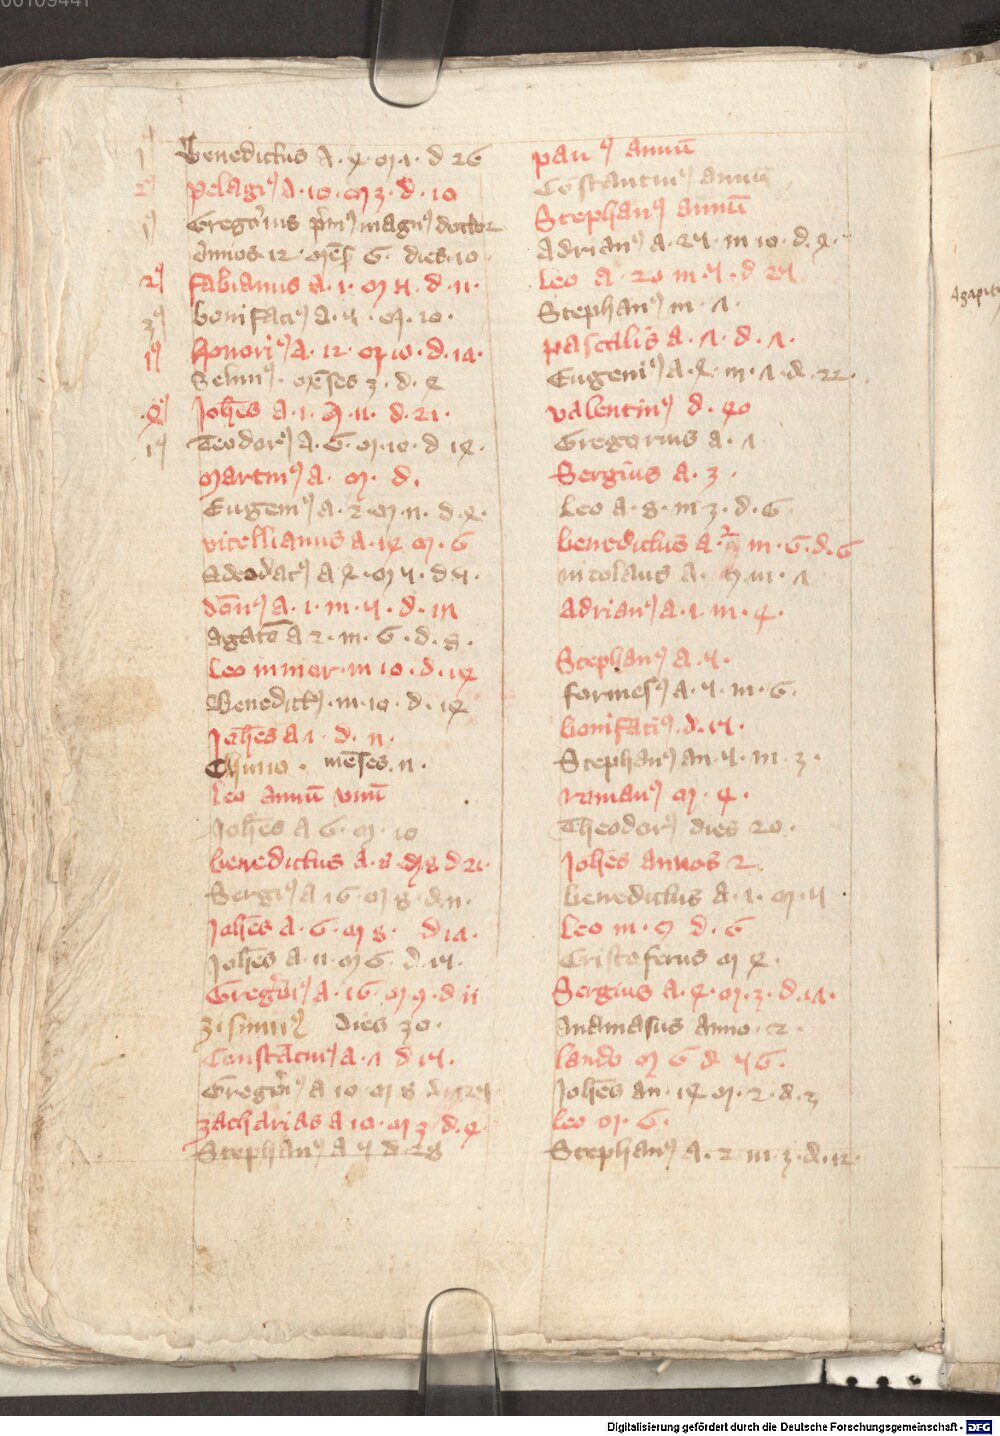 00109441
1⁹ Benedictus A · 4 · m · 1 · d 26
2⁹ pelagi⁹ A · 10 · m 3 · d · 10
1⁹ Gregorius p̄m⁹ magn⁹ doctor
annos · 12 · mēs 6 · dies · 10 ·
2⁹ fabianus A · 1 · m 5 · d · 11 ·
3⁹ bonifaci⁹ A · 5 · m · 10 ·
1⁹ honori⁹ A · 12 · m 10 · d · 17 ·
Seluin⁹ · mēses 3 · d · 4
4⁹ Joh̄es A · 1 · 9 · 11 · d · 21 ·
1⁹ Teodor⁹ A · 6 · m · 10 · d 14 ·
martin⁹ A · m · d ·
Eugeni⁹ A · 2 · m · 11 · d · 4 ·
vitellianus A · 14 m · 6
Adeodat⁹ A 4 · m 5 · d 5 ·
don⁹ A · 1 · m · 5 · d · 1
agato A 2 · m · 6 · d · 8 ·
Leo iunior · m 10 · d · 14
Benedict⁹ · m · 10 · d · 14
Joh̄es A 1 · d · 11 ·
mēses · 11 ·
Leo annū vnū
Joh̄es A 6 · m · 10
benedictus A · 8 m 8 d 21 ·
Sergi⁹ A 16 · m 8 · d · 11 ·
Joh̄es A · 6 · m 8 · d 17 ·
Joh̄es A · 11 · m 6 · d · 15 ·
Gregori⁹ A · 16 · m 9 · d 11
zisinni⁹ dies 30 ·
Constātin⁹ A · 7 d 15 ·
Gregori⁹ A 10 m 8 d 25
zacharias A 10 · m 3 · d · 4 ·
Stephan⁹ A 5 d 28
pau⁹ annū
Cōstantin⁹ annū
Stephan⁹ annū
Adrian⁹ A · 25 · m 10 · d · 4 ·
Leo A · 20 m · 5 · d 25
Stephan⁹ m · 7 ·
pascalis A · 7 · d · 7 ·
Eugeni⁹ A · 4 · m · 7 · d · 22 ·
valentin⁹ d · 40
Gregorius A · 7
Sergius A · 3 ·
Leo A · 8 · m 3 · d · 6
benedictus A · 2 m · 6 · d · 6
nicolaus A · 9 m · 7
Adrian⁹ A · 1 · m · 4 ·
Stephan⁹ A · 5 ·
formos⁹ A · 5 · m · 6 ·
bonifaci⁹ · d · 15 ·
Stephan⁹ an · 5 · m · 3 ·
roman⁹ m · 4 ·
Theodor⁹ dies 20 ·
Joh̄es annos 2
benedictus A · 1 · m · 5
Leo m · 9 d · 6
Cristoferus m 4 ·
Sergius A · 4 · m · 3 · d · 17 ·
anamasus anno · 2 ·
lando m 6 d 56 ·
Joh̄es an · 14 m · 2 · d · 3
Leo m · 6 ·
Stephan⁹ A · 2 m · 3 · d · 12 ·
Agapit
Digitalisierung gefördert durch die Deutsche Forschungsgemeinschaft - DFG